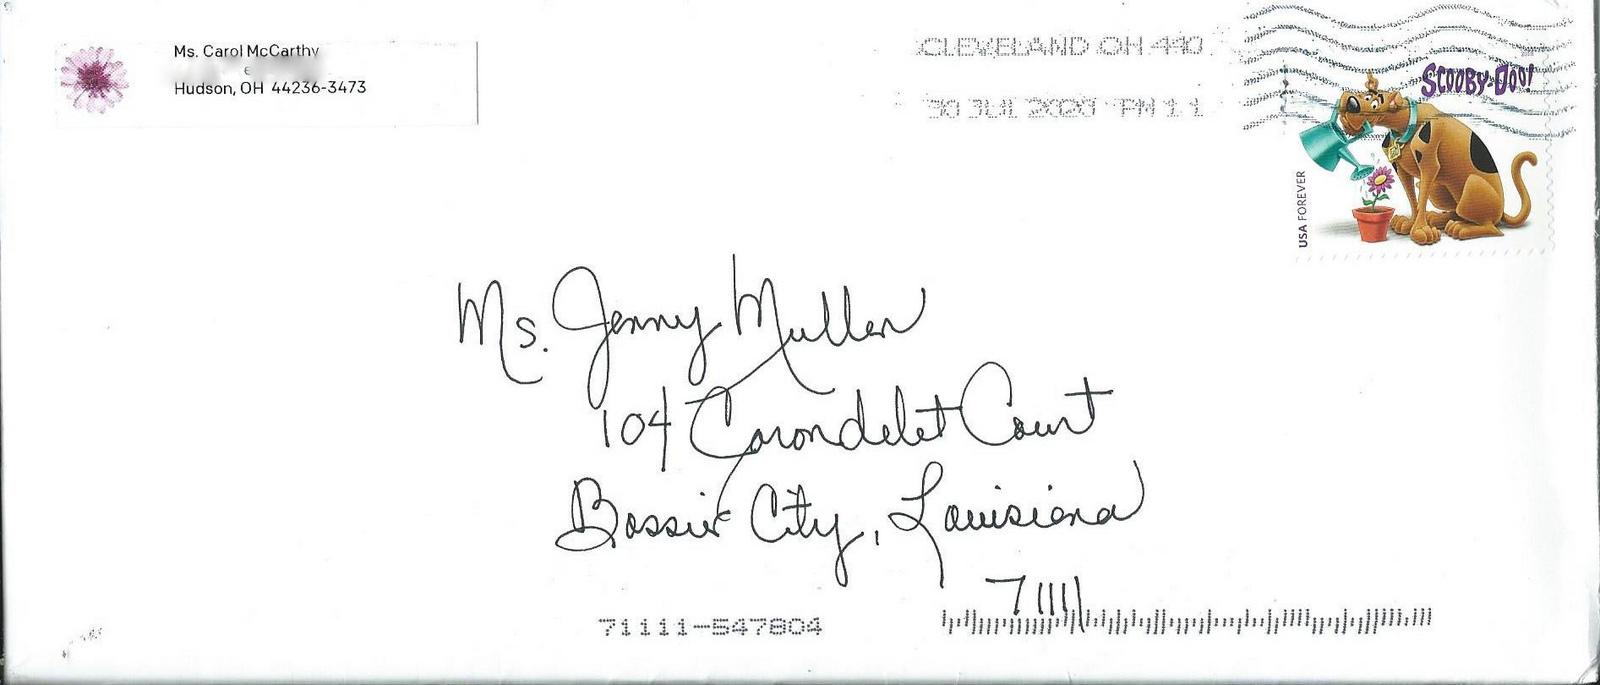 Ms. Carol McCarthy
Hudson, OH 44236-3473
CLEVELAND OH 440
30 JUL 2020 PM 1 1
SCOOBY-DOO!
USA FOREVER
Ms. Jenny Mullen
104 Carondelet Court
Bossier City, Louisiana
71111
71111-547804